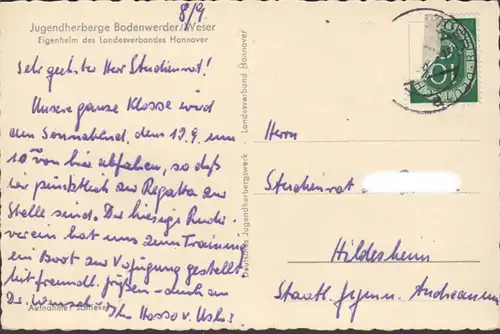 8/9.
Jugendherberge Bodenwerder/Weser
Eigenheim des Landesverbandes Hannover
Sehr geehrter Herr Studienrat!
Unsere ganze Klasse wird
am Sonnabend, dem 19.9. um
10°° von hier abfahren, so daß
wir pünktlich zur Regatta zur
Stelle sind. Der hiesige Ruder-
verein hat uns zum Training
ein Boot zur Verfügung gestellt
Mit freundl. Grüßen - auch an
Dr. Ihr Hasso v.
Aufnahme:
Deutsches Jugendherbergswerk - Landesverband Hannover
Herrn
Studienrat
Hildesheim
Staatl. Gymn. Andreanum